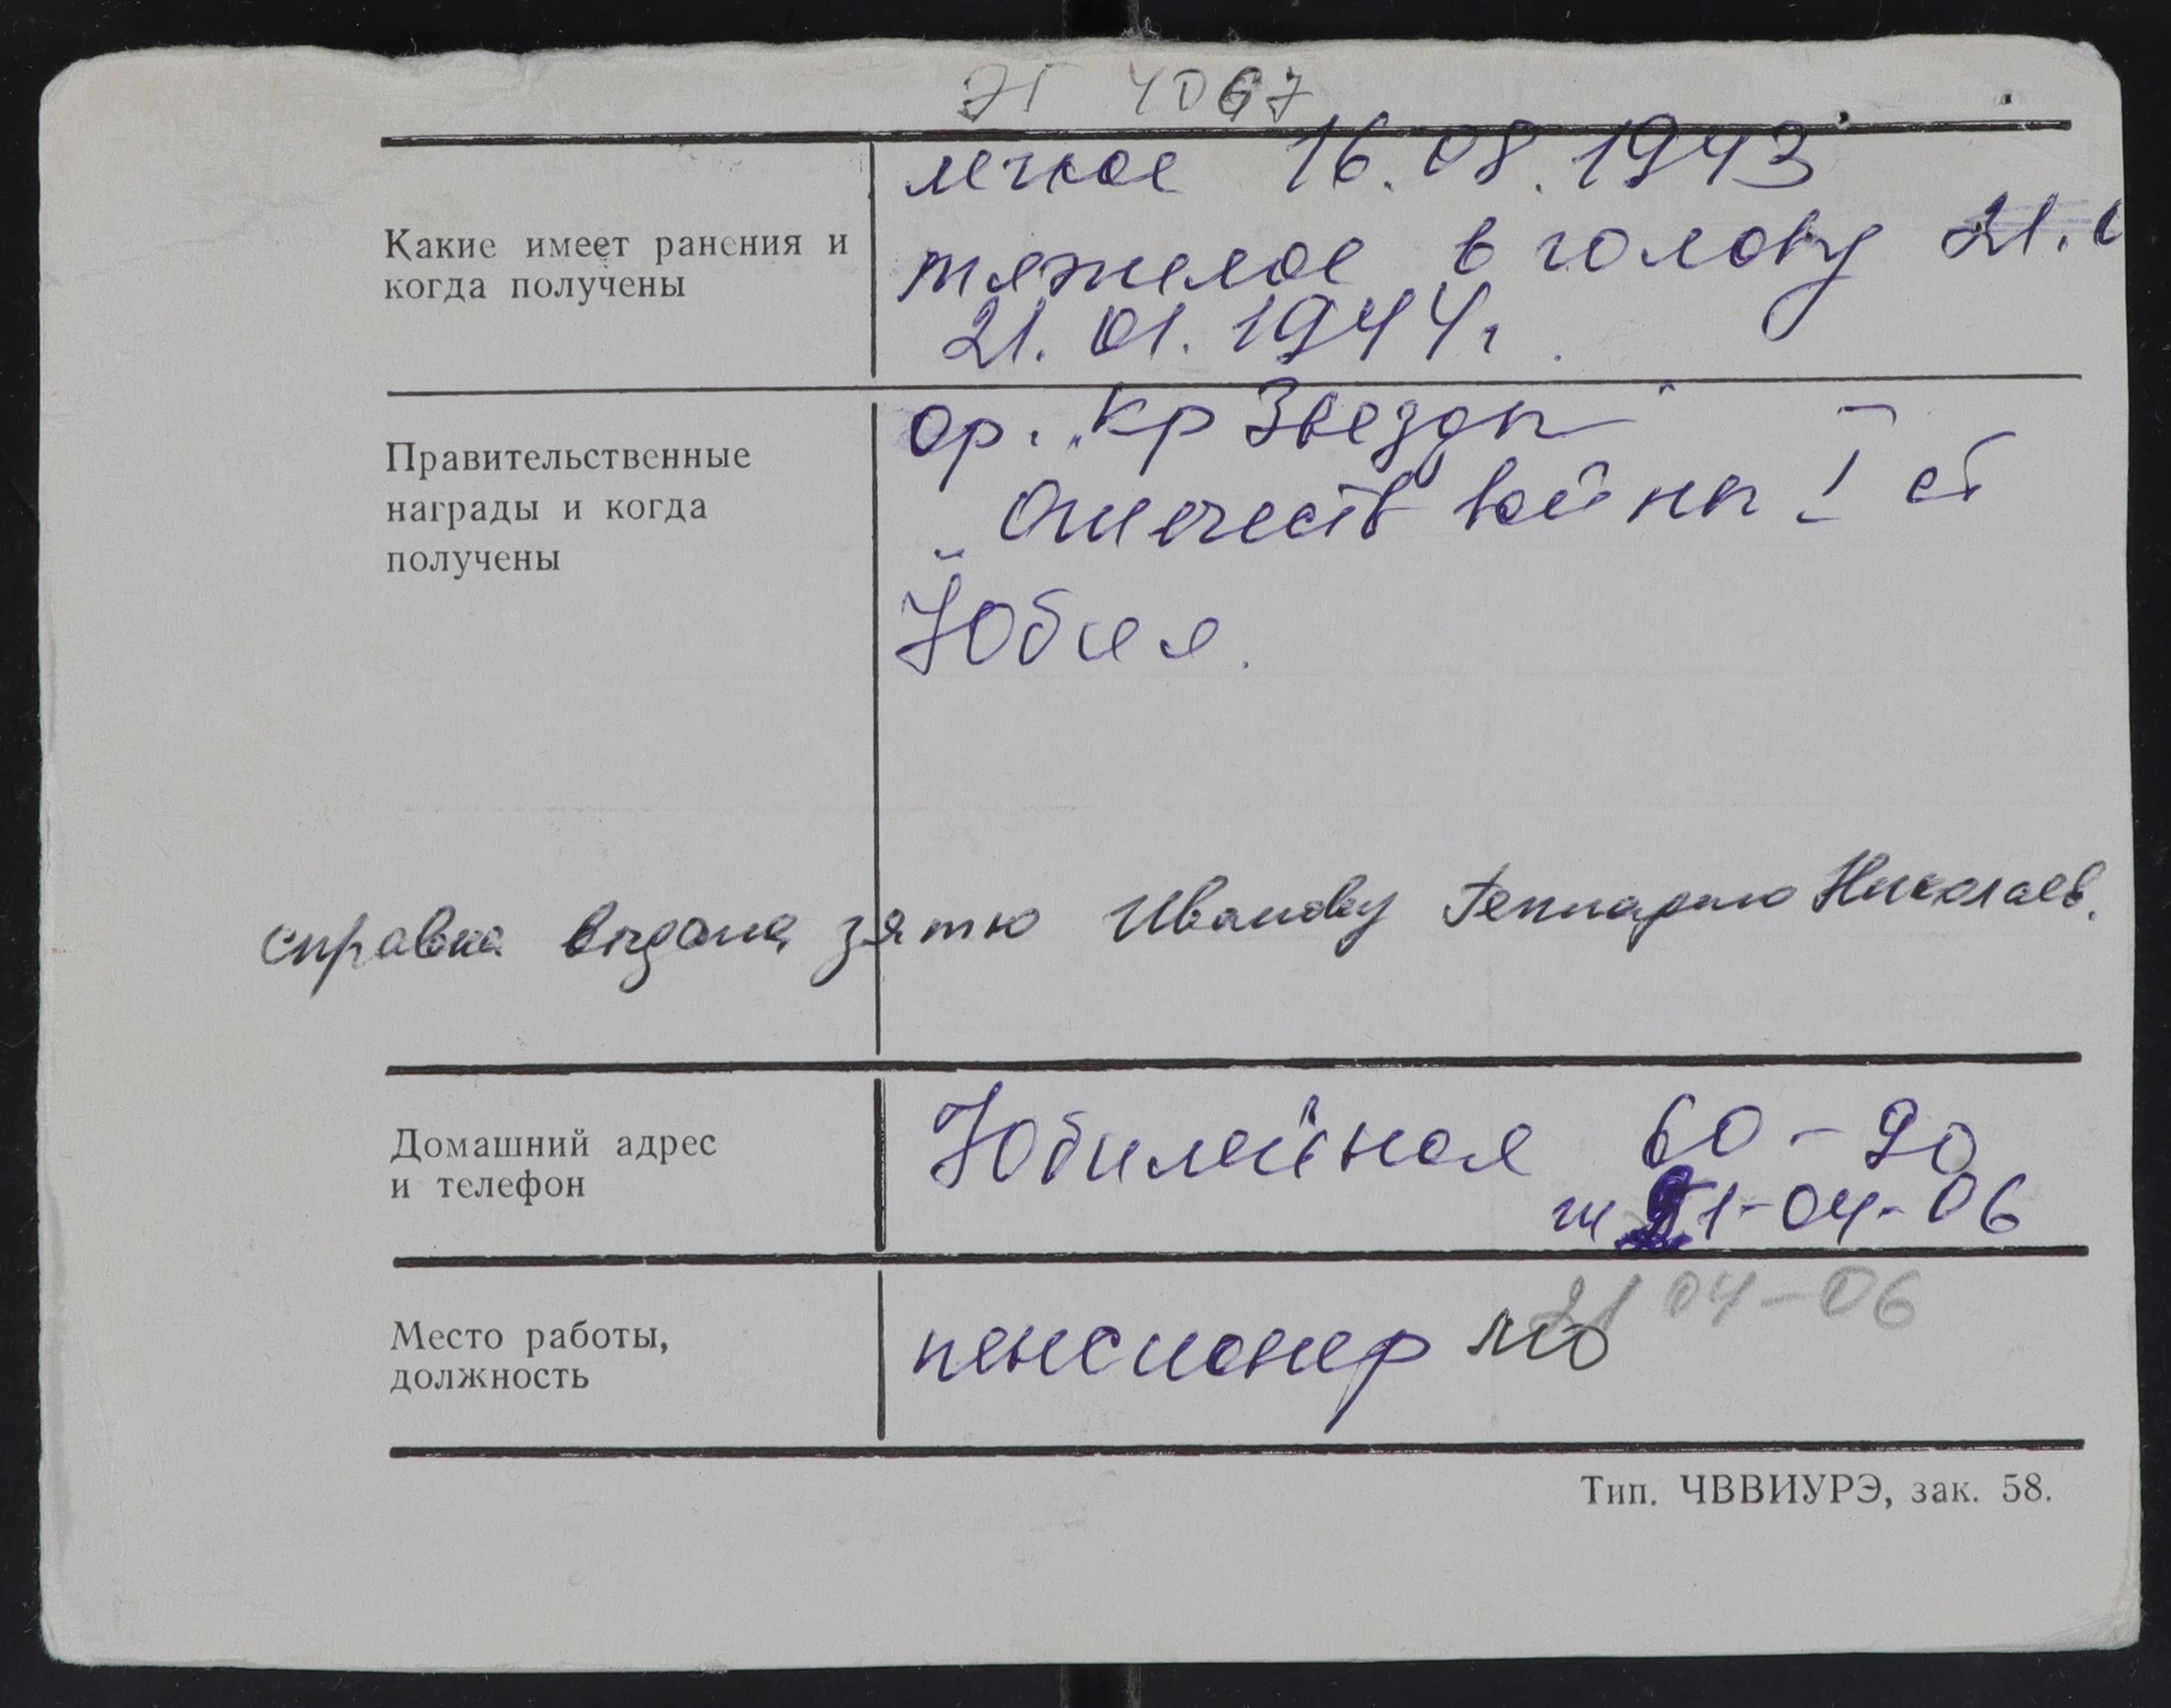 4067
легкое 16.08.1943
Какие имеет ранения и
когда получены
тяжелое в голову 21.0
21.01.1944г.
Правительственные
награды и когда
получены
ор. „Кр Звезды"
„Отечеств войны" I ст
Юбил.
справка выдана зятю Иванову Геннадию Николаев.
Домашний адрес
и телефон
Юбилейная 60-90
т 21-04-06
21 04-06
Место работы,
должность
пенсионер МО
Тип. ЧВВИУРЭ, зак. 58.